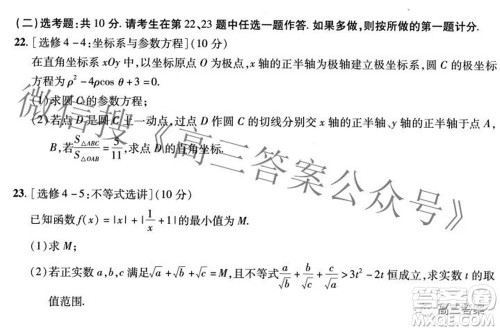 (二)选考题:共10分.请考生在第22、23题中任选一题作答.如果多做,则按所做的第一题计分.
22.[选修4-4:坐标系与参数方程](10分)
在直角坐标系xOy中,以坐标原点O为极点,x轴的正半轴为极轴建立极坐标系,圆C的极坐标
方程为ρ²-4ρcos θ+3=0.
(1)求圆C的参数方程;
(2)若点D是圆C上一动点,过点D作圆C的切线分别交x轴的正半轴、y轴的正半轴于点A,
B,若S△ABC/S△OAB=5/11,求点D的直角坐标.
23.[选修4-5:不等式选讲](10分)
已知函数f(x)=|x|+|1/x+1|的最小值为M.
(1)求M;
(2)若正实数a,b,c满足√a+√b+√c=M,且不等式a/√b+b/√c+c/√a>3t²-2t恒成立,求实数t的取
值范围.
微信搜《高三答案公众号》
高三答案